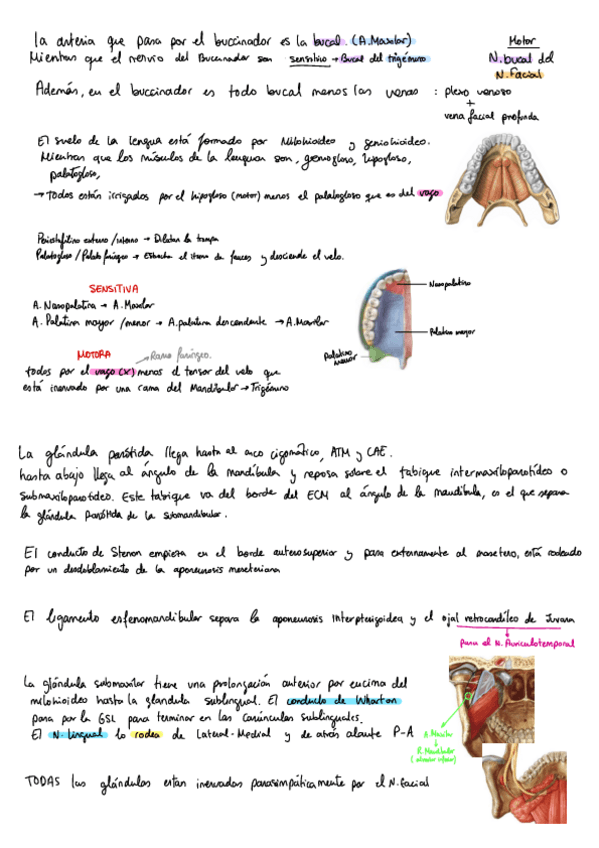 La arteria que pasa por el buccinador es la bucal. (A. Maxilar)
Mientras que el nervio del Buccinador son sensitivo → Bucal del trigémino
Motor
N. bucal del
N. Facial
Además, en el buccinador es todo bucal menos las venas : plexo venoso
+
vena facial profunda
El suelo de la lengua está formado por Milohioideo y geniohioideo.
Mientras que los músculos de la lengua son, geniogloso, hipogloso,
palatogloso,
→ Todos están irrigados por el hipogloso (motor) menos el palatogloso que es del vago
externo / interno → Dilatan la trompa
Palatogloso / Palatofaríngeo → Estrecha el istmo de fauces y desciende el velo.
SENSITIVA
A. Nasopalatina → A. Maxilar
A. Palatina mayor / menor → A. palatina descendente → A. Maxilar
Nasopalatino
Palatino mayor
Palatino menor
MOTORA
Ramo faríngeo.
todos por el vago (X) menos el tensor del velo que
está inervado por una rama del Mandibular → Trigémino
La glándula parótida llega hasta el arco cigomático, ATM y CAE.
hasta abajo llega al ángulo de la mandíbula y reposa sobre el tabique intermaxiloparotídeo o
submaxiloparotídeo. Este tabique va del borde del ECM al ángulo de la mandíbula, es el que separa
la glándula Parótida de la submandibular.
El conducto de Stenon empieza en el borde anterosuperior y pasa externamente al masetero, está rodeado
por un desdoblamiento de la aponeurosis masetérina
El ligamento esfenomandibular separa la aponeurosis interpterigoidea y el ojal retrocondíleo de Juvara
pasa el N. Auriculotemporal
La glándula submaxilar tiene una prolongación anterior por encima del
milohioideo hasta la glándula sublingual. El conducto de Wharton
pasa por la GSL para terminar en las carúnculas sublinguales.
El N. lingual lo rodea de Lateral-Medial y de atrás alante P-A
A. Maxilar
↓
R. Mandibular
(alveolar inferior)
TODAS las glándulas están inervadas parasimpáticamente por el N. facial